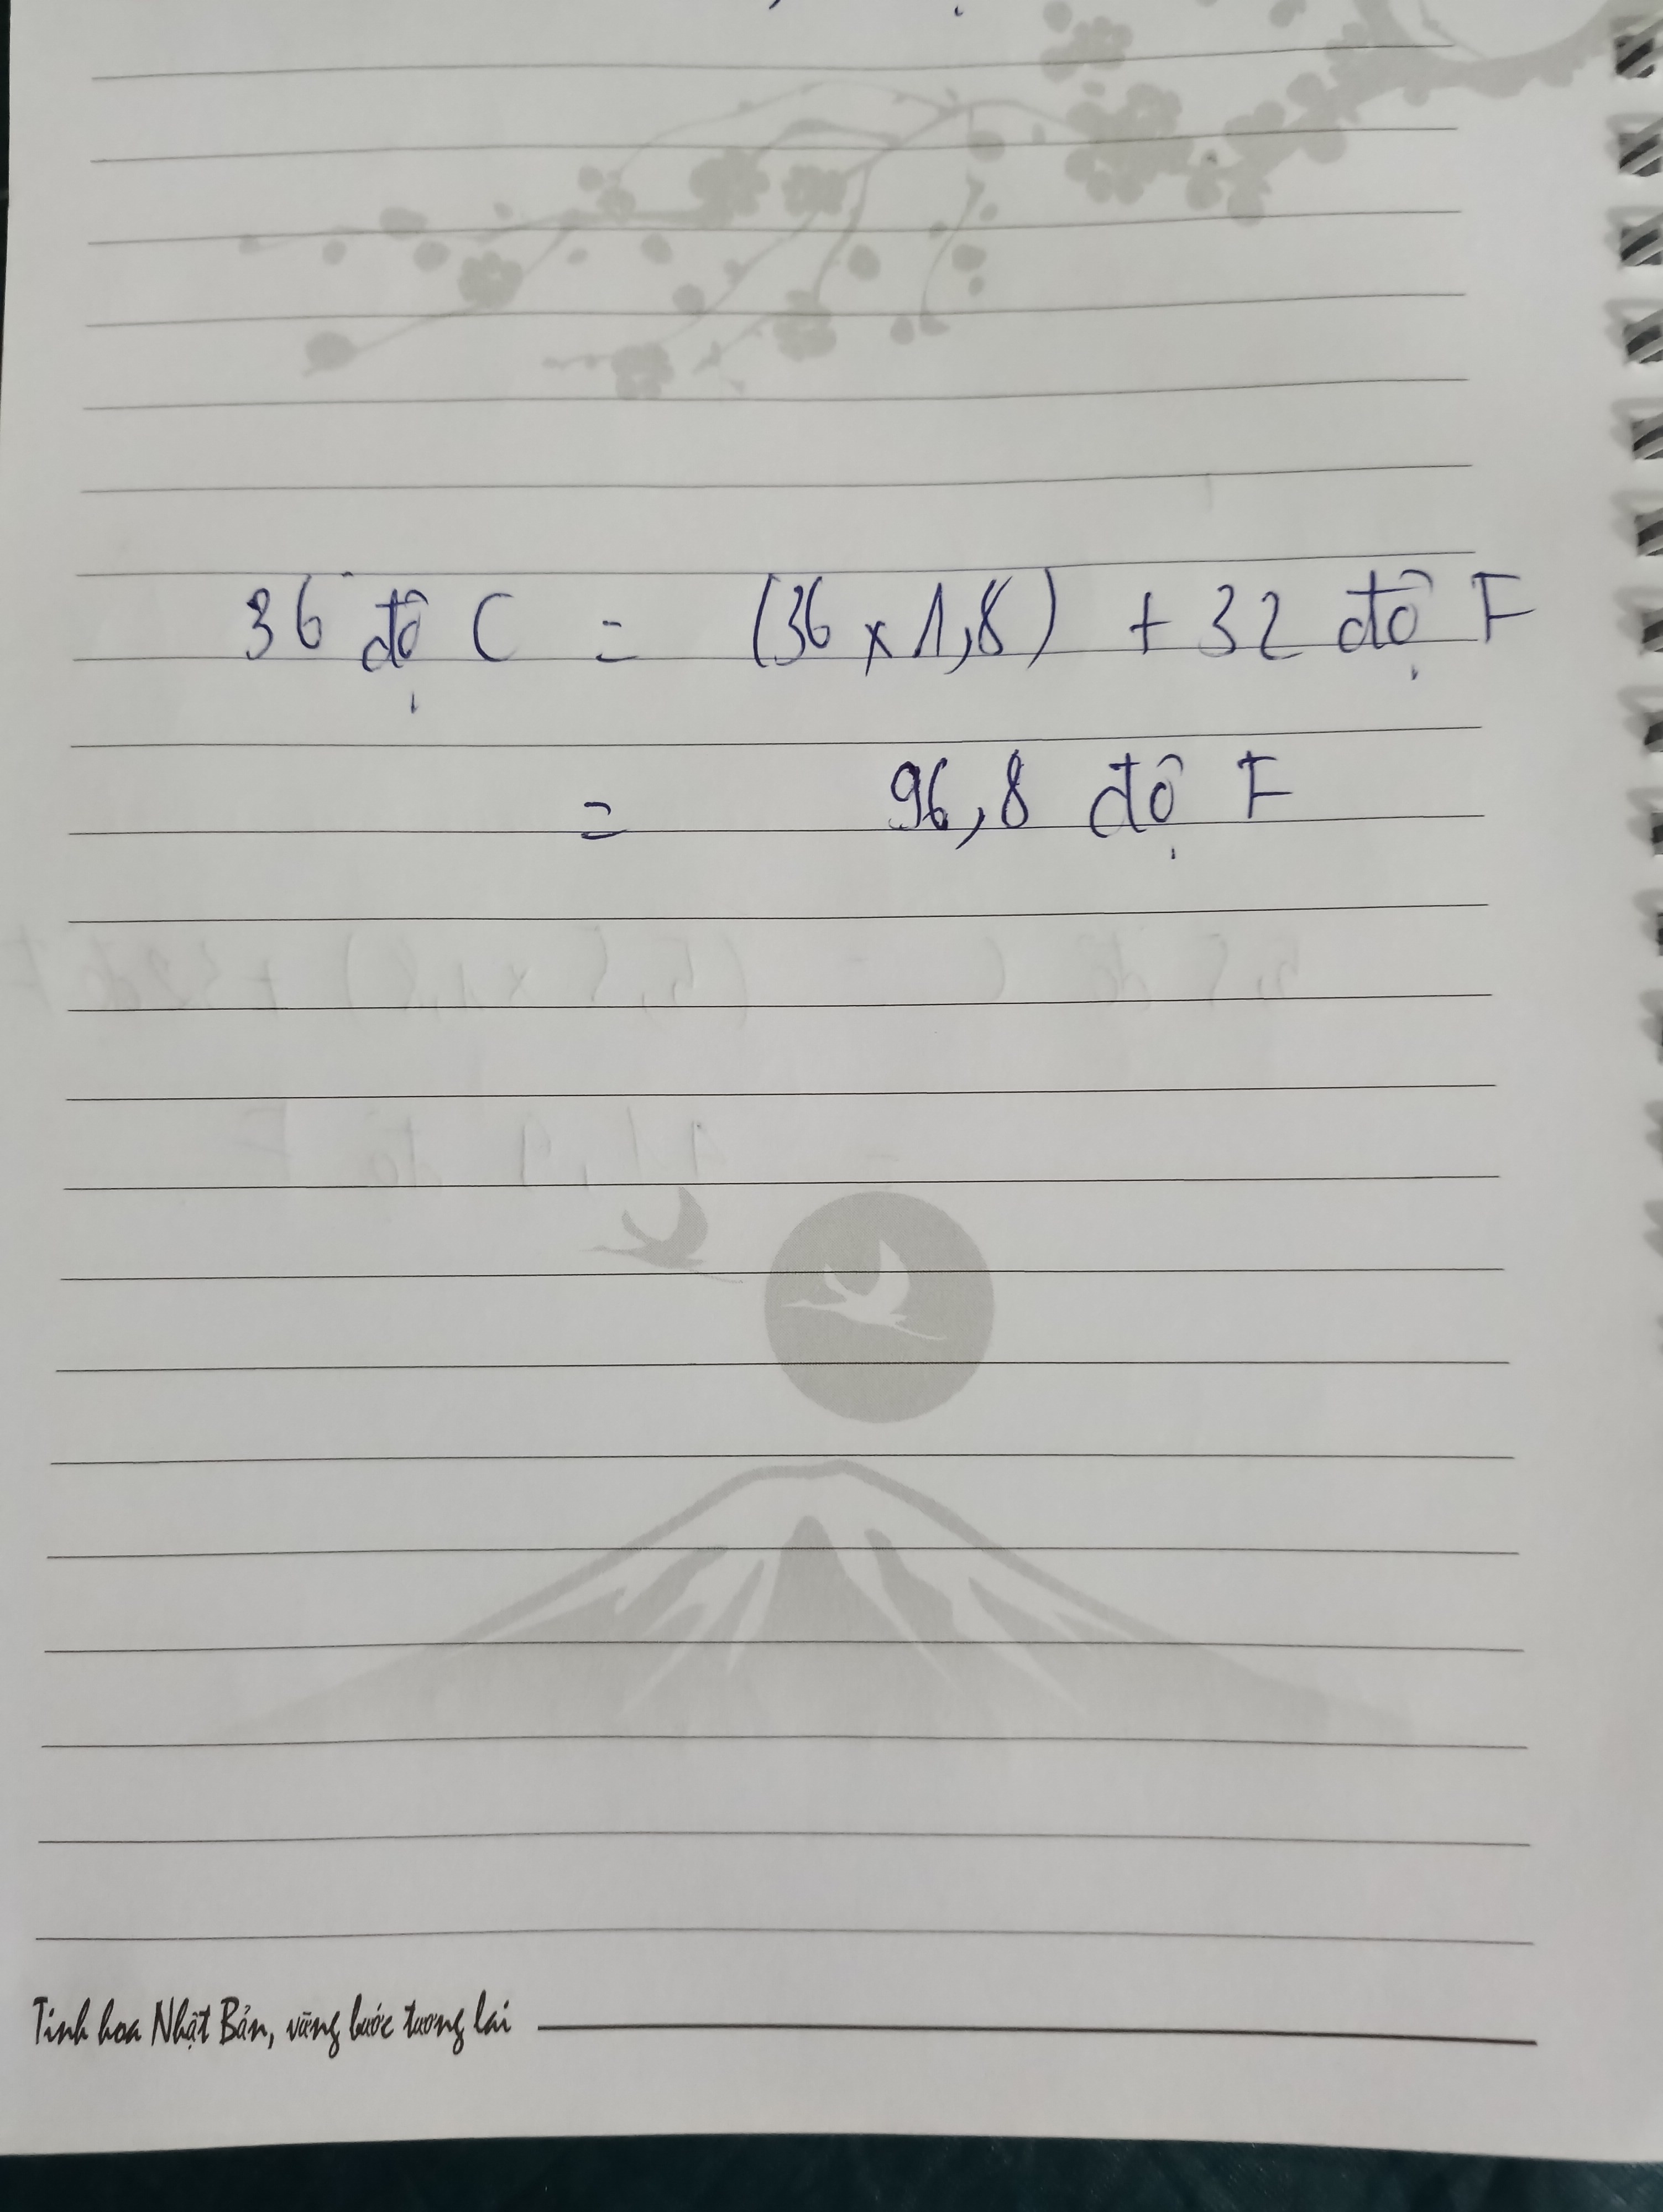 36 độ C = (36 x 1,8) + 32 độ F
= 96,8 độ F
Tinh hoa Nhật Bản, vững bước tương lai